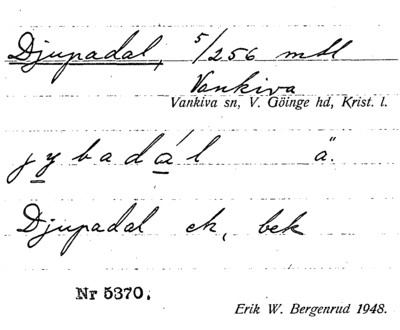 Djupadal, 5/256 mtl
Vankiva
Vankiva sn, V. Göinge hd, Krist. l.
jybadál ä.
Djupadal ek, bek
Nr 5370.
Erik W. Bergenrud 1948.